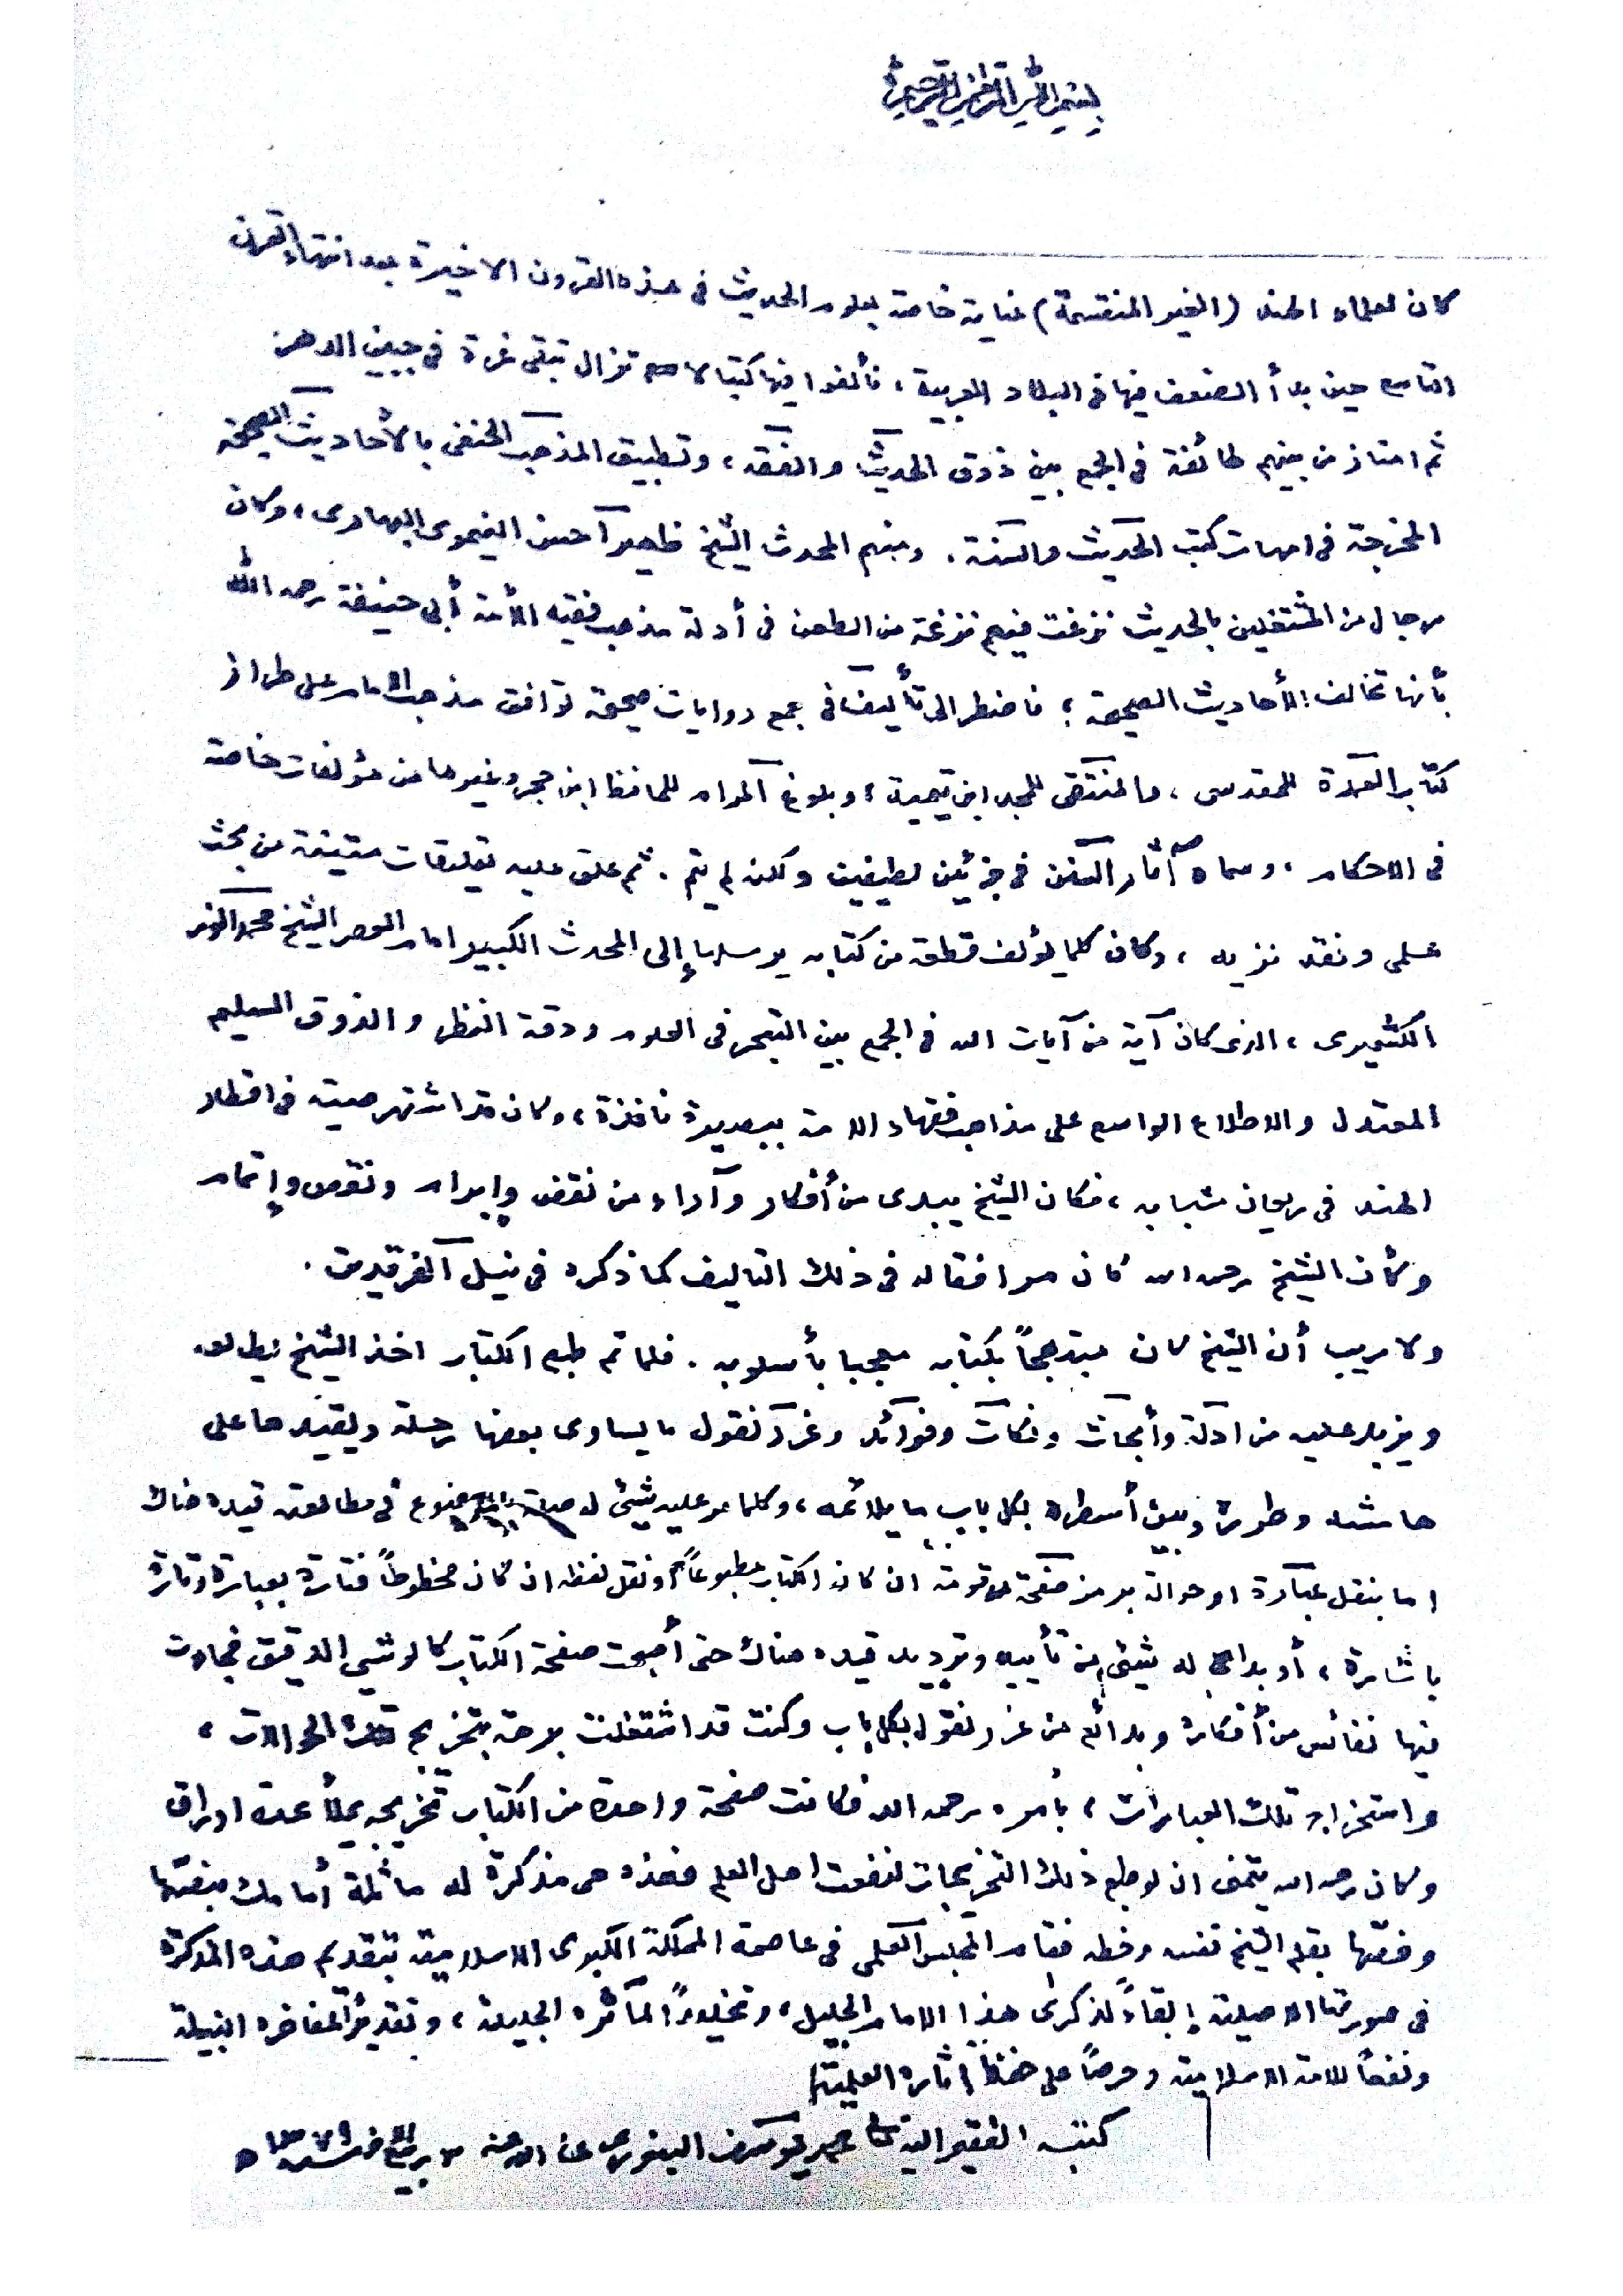 بسم الله الرحمن الرحيم
كان لعلماء الهند (الغير المنقسمة) عناية خاصة بعلوم الحديث فى هذه القرون الاخيرة بعد انتهاء القرن
التاسع حين بدأ الضعف فيها فى البلاد العربية ، فألفوا فيها كتبا لا تزال تبقى غرة فى جبين الدهر
ثم امتاز من بينهم طائفة فى الجمع بين ذوق الحديث والفقه ، وتطبيق المذهب الحنفى بالأحاديث الصحيحة
المخرجة فى امهات كتب الحديث والسنة . ومنهم المحدث الشيخ ظهير احسن النيموى البهارى ، وكان
رجال من المشتغلين بالحديث نزغت فيهم نزغة من الطعن فى أدلة مذهب فقيه الأمة أبى حنيفة رحمه الله
بأنها تخالف الأحاديث الصحيحة ؛ فاضطر الى تأليف فى جمع روايات صحيحة توافق مذهب الامام على طراز
كتاب العمدة للمقدسى ، والمنتقى للمجد ابن تيمية ؛ وبلوغ المرام للحافظ ابن حجر وغيرها من مؤلفات خاصة
فى الاحكام ، وسماه آثار السنن فى جزئين لطيفين ولكن لم يتم . ثم علق عليه تعليقات متينة من بحث
علمى ونقد نزيه ، وكان كلما يؤلف قطعة من كتابه يرسلها إلى المحدث الكبير امام العصر الشيخ محمد انور
الكشميرى ، الذى كان آية من آيات الله فى الجمع بين التبحر فى العلوم ودقة النظر والذوق السليم
المعتدل والاطلاع الواسع على مذاهب فقهاء الامة ببصيرة نافذة ، وكان قد اشتهر صيته فى اقطار
الهند فى ريعان شبابه ، فكان الشيخ يبدى من أفكار وآراء من نقض وإبرام ونقص وإتمام
وكأن الشيخ رحمه الله كان مرافقا له فى ذلك التاليف كما ذكره فى نيل الفرقدين .
ولا ريب أن الشيخ كان مبتهجاً بكتابه معجبا بأسلوبه . فلما تم طبع الكتاب اخذ الشيخ يطالعه
ويزيد عليه من ادلة وأبحاث ونكات وفوائد وغرر نقول ما يساوى بعضها رحلة ويقيدها على
هامشه وطوره وبين أسطره بكل باب ما يلائمه ، وكلما مر عليه شيئ له صلة بالموضوع فى مطالعته قيده هناك
اما بنقل عبارة او حوالة برمز صفحة مرقومة ان كان الكتاب مطبوعاً أو نقل لفظه ان كان مخطوطاً فتارة بعبارة وتارة
باشارة ، أو بدا له شيئ من تأييد وترديد قيده هناك حتى أصبحت صفحة الكتاب كالوشى الدقيق فجاءت
فيها نفائس من أفكاره وبدائع من غرر نقول بكل باب وكنت قد اشتغلت برهة بتخريج تلك الحوالات ،
واستخراج تلك العبارات ، بأمره رحمه الله فكانت صفحة واحدة من الكتاب تخريجه يملأ عدة اوراق
وكان رحمه الله يتمنى ان لو طبع ذلك التخريجات لنفعت اهل العلم فهذه هى مذكرة له ماثلة أمامك بنصها
وفصها بقلم الشيخ نفسه وخطه فقام المجلس العلمى فى عاصمة المملكة الكبرى الاسلامية بتقديم هذه المذكرة
فى صورتها الاصيلة إبقاءً لذكرى هذا الامام الجليل ، وتخليداً لمآثره الجليلة ، وتقديراً لمفاخره النبيلة
ونفعاً للامة الاسلامية وحرصاً على حفظ آثاره العلمية
كتبه الفقير اليه تعالى محمد يوسف البنورى عفا الله عنه ربيع سنة ١٣٧٩ ه